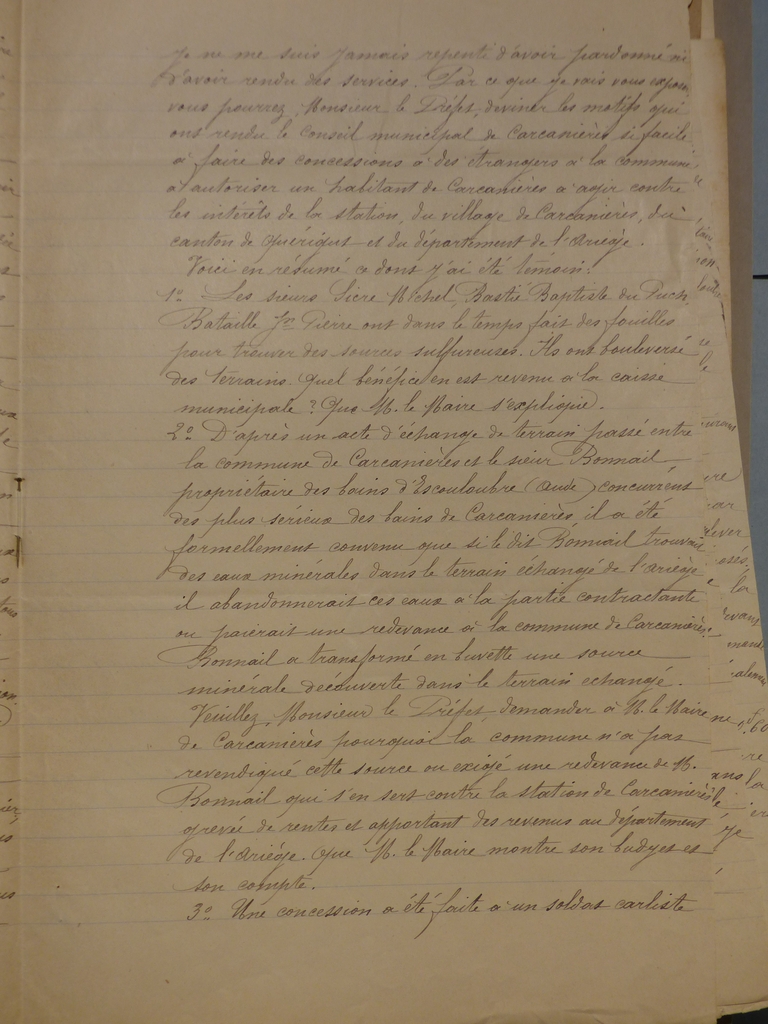 Je ne me suis jamais repenti d'avoir pardonné ni
d'avoir rendu des services. Par ce que je vais vous exposer
vous pourrez, Monsieur le Préfet, deviner les motifs qui
ont rendu le Conseil municipal de Carcanières si facile
à faire des concessions à des étrangers à la commune
à autoriser un habitant de Carcanières à agir contre
les intérêts de la station, du village de Carcanières, du
canton de Quérigut et du département de l'Ariège.
Voici en résumé ce dont j'ai été témoin:
1o Les sieurs Sicre Michel, Bastié Baptiste du Puch
Bataille Jn Pierre ont dans le temps fait des fouilles
pour trouver des sources sulfureuses. Ils ont bouleversé
des terrains. Quel bénéfice en est revenu à la caisse
municipale? Que M. le Maire s'explique.
2o D'après un acte d'échange de terrain passé entre
la commune de Carcanières et le sieur Bonnail
propriétaire des bains d'Escouloubre (Aude) concurrent
des plus sérieux des bains de Carcanières, il a été
formellement convenu que si le dit Bonnail trouvait
des eaux minérales dans le terrain échangé de l'Ariège
il abandonnerait ces eaux à la partie contractante
ou paierait une redevance à la commune de Carcanières.
Bonnail a transformé en buvette une source
minérale découverte dans le terrain echangé.
Veuillez, Monsieur le Préfet demander à M. le Maire
de Carcanières pourquoi la commune n'a pas
revendiqué cette source ou exigé une redevance de M.
Bonnail qui s'en sert contre la station de Carcanières
grevée de rentes et apportant des revenus au département
de l'Ariège. Que M. le Maire montre son budget et
son compte.
3o Une concession a été faite à un soldat carliste